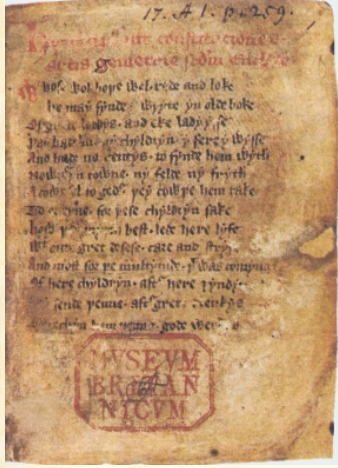 17. A 1. p. 259.
constituciones
artis gemetrie secundum Euclyde
Whose wol boþe wel rede and loke
he may fynde wryte yn olde boke
Of grete lordys and eke ladyysse
Þat had mony chyldryn y fere y wysse
And hade no rentys to fynde hem wyth
Nowþer yn towne ny felde ny fryth
A cownsel to gedur þey cowþe hem take
To ordeyne for þese chyldryn sake
how þey best lede here lyfe
Wt oute gret desese care and stryfe
And most for þe multytude þt was comynge
Of here chyldryn aftr here
sende þenne aftr grete clerkys
To techyn hem þenne gode werkys
MVSEVM
BRITAN
NICVM